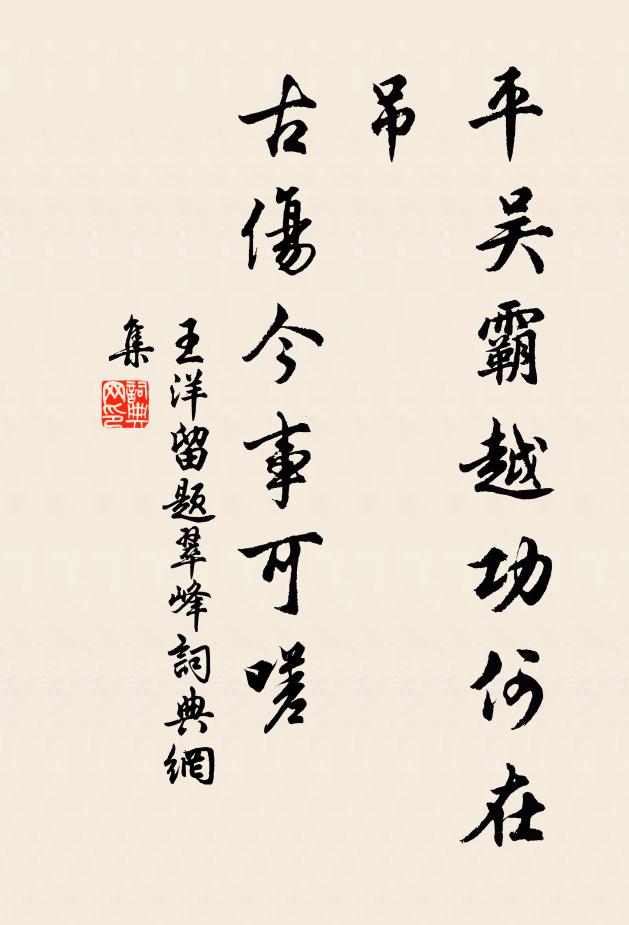 平吴霸越功何在
吊
古傷今事可嗟
王洋留题翠峰詞典網
集
詞典
网印